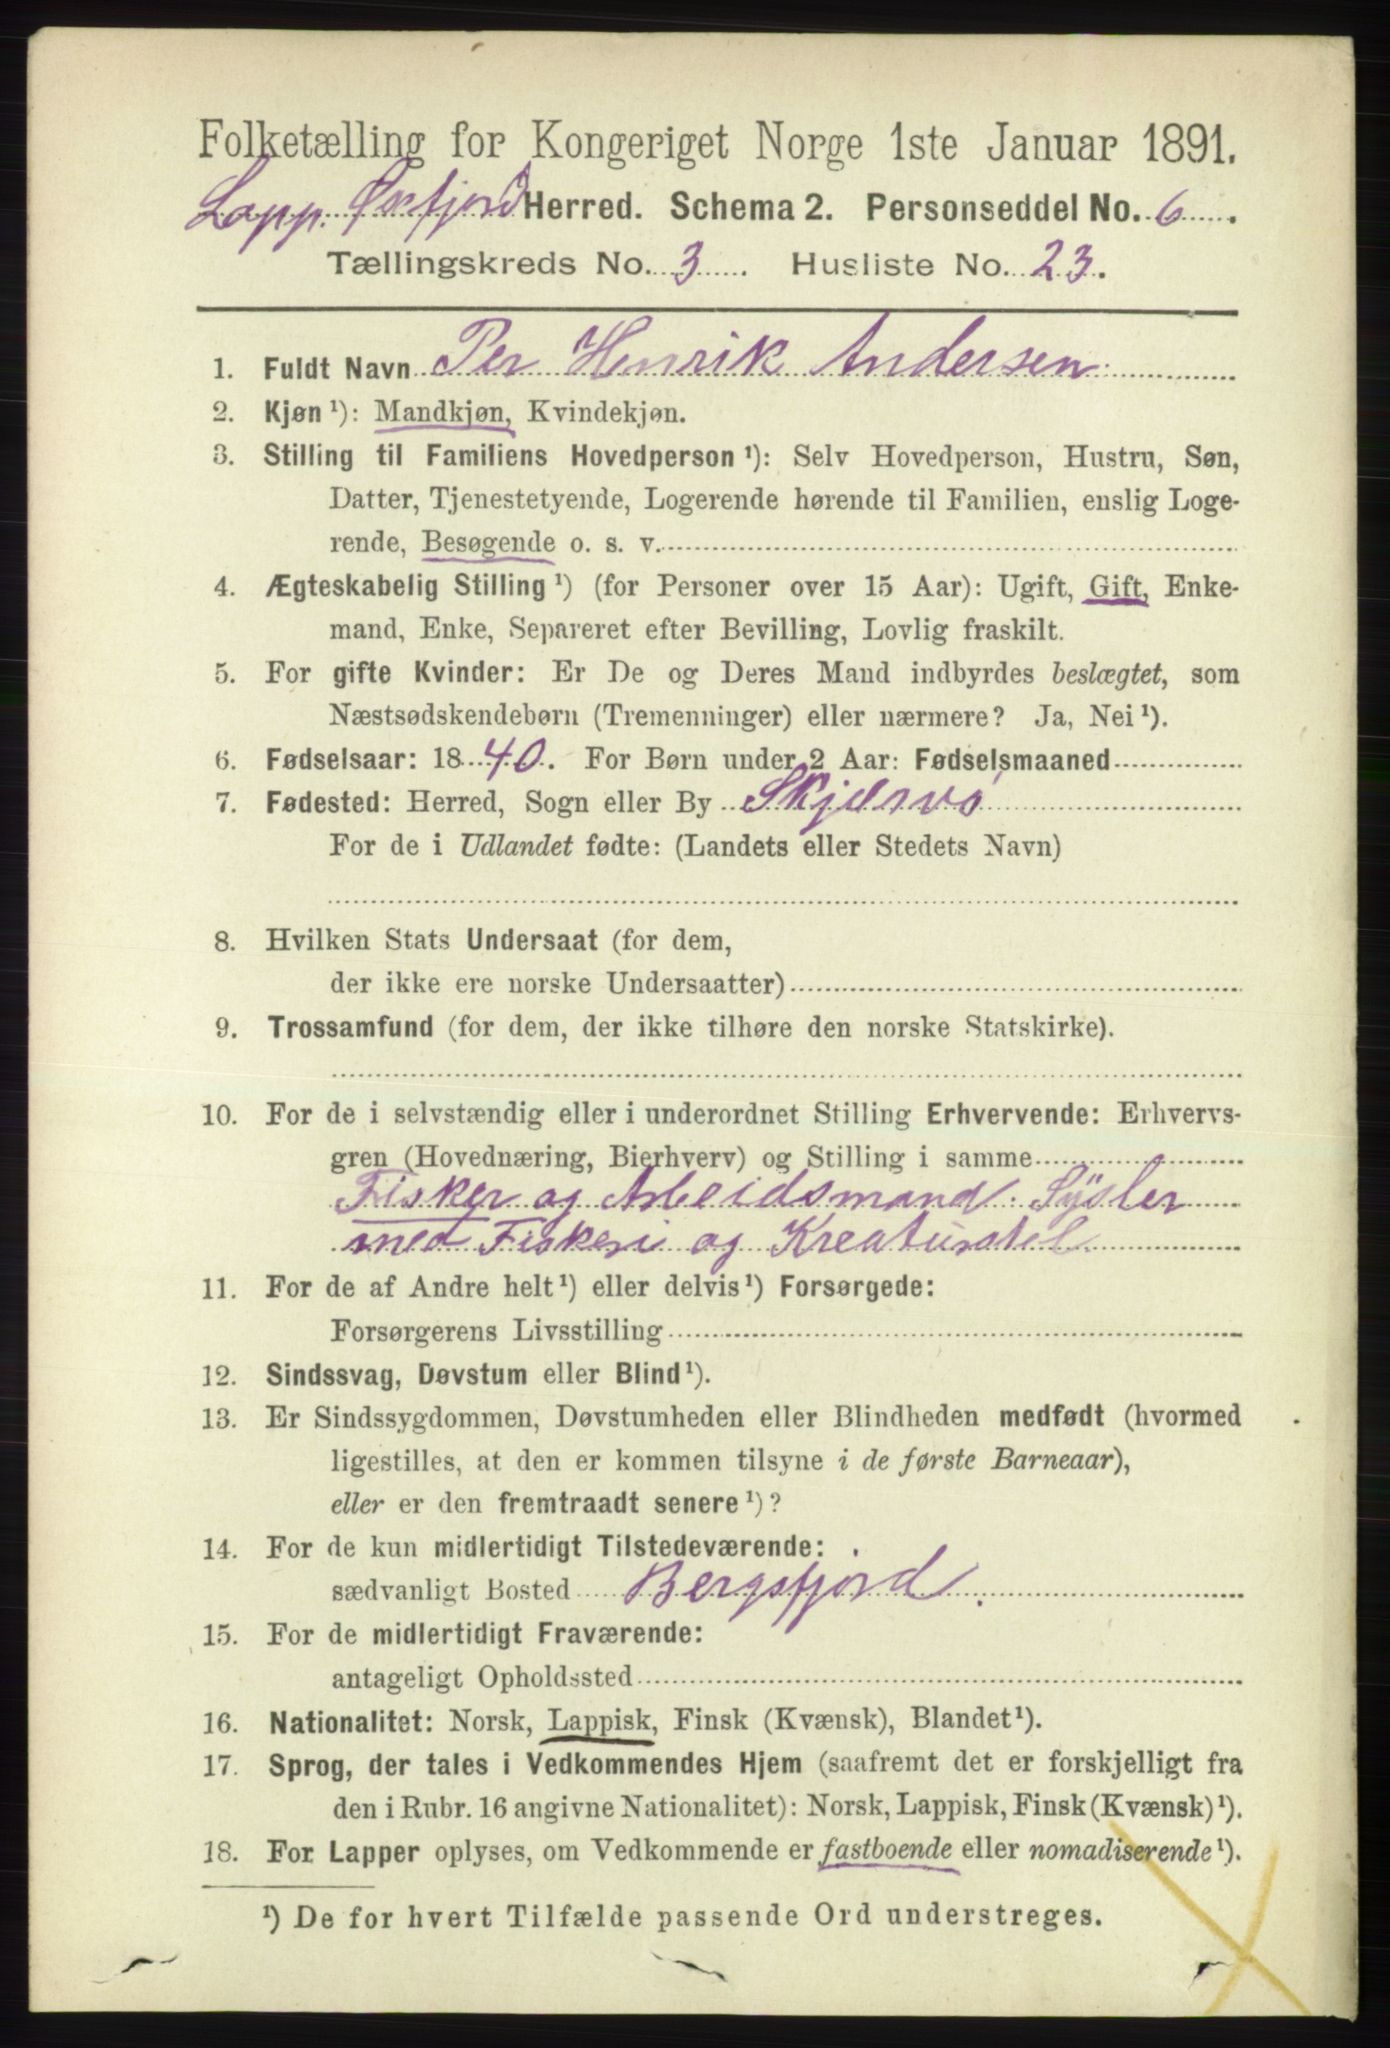 Folketælling for Kongeriget Norge 1ste Januar 1891.
Lopp. Øxfjord Herred. Schema 2. Personseddel No. 6.
Tællingskreds No. 3. Husliste No. 23.
1. Fuldt Navn Per Henrik Andersen
2. Kjøn ¹): Mandkjøn, Kvindekjøn.
3. Stilling til Familiens Hovedperson ¹): Selv Hovedperson, Hustru, Søn,
Datter, Tjenestetyende, Logerende hørende til Familien, enslig Loge-
rende, Besøgende o. s. v.
4. Ægteskabelig Stilling ¹) (for Personer over 15 Aar): Ugift, Gift, Enke-
mand, Enke, Separeret efter Bevilling, Lovlig fraskilt.
5. For gifte Kvinder: Er De og Deres Mand indbyrdes beslægtet, som
Næstsødskendebørn (Tremenninger) eller nærmere? Ja, Nei ¹).
6. Fødselsaar: 1840. For Børn under 2 Aar: Fødselsmaaned
7. Fødested: Herred, Sogn eller By Skjærvø
For de i Udlandet fødte: (Landets eller Stedets Navn)
8. Hvilken Stats Undersaat (for dem,
der ikke ere norske Undersaatter)
9. Trossamfund (for dem, der ikke tilhøre den norske Statskirke).
10. For de i selvstændig eller i underordnet Stilling Erhvervende: Erhvervs-
gren (Hovednæring, Bierhverv) og Stilling i samme
Fisker og Arbeidsmand. Sysler
med Fiskeri og Kreaturstel.
11. For de af Andre helt ¹) eller delvis ¹) Forsørgede:
Forsørgerens Livsstilling
12. Sindssvag, Døvstum eller Blind ¹).
13. Er Sindssygdommen, Døvstumheden eller Blindheden medfødt (hvormed
ligestilles, at den er kommen tilsyne i de første Barneaar),
eller er den fremtraadt senere ¹)?
14. For de kun midlertidigt Tilstedeværende:
sædvanligt Bosted Bergsfjord.
15. For de midlertidigt Fraværende:
antageligt Opholdssted
16. Nationalitet: Norsk, Lappisk, Finsk (Kvænsk), Blandet ¹).
17. Sprog, der tales i Vedkommendes Hjem (saafremt det er forskjelligt fra
den i Rubr. 16 angivne Nationalitet): Norsk, Lappisk, Finsk (Kvænsk) ¹).
18. For Lapper oplyses, om Vedkommende er fastboende eller nomadiserende ¹).
¹) De for hvert Tilfælde passende Ord understreges.